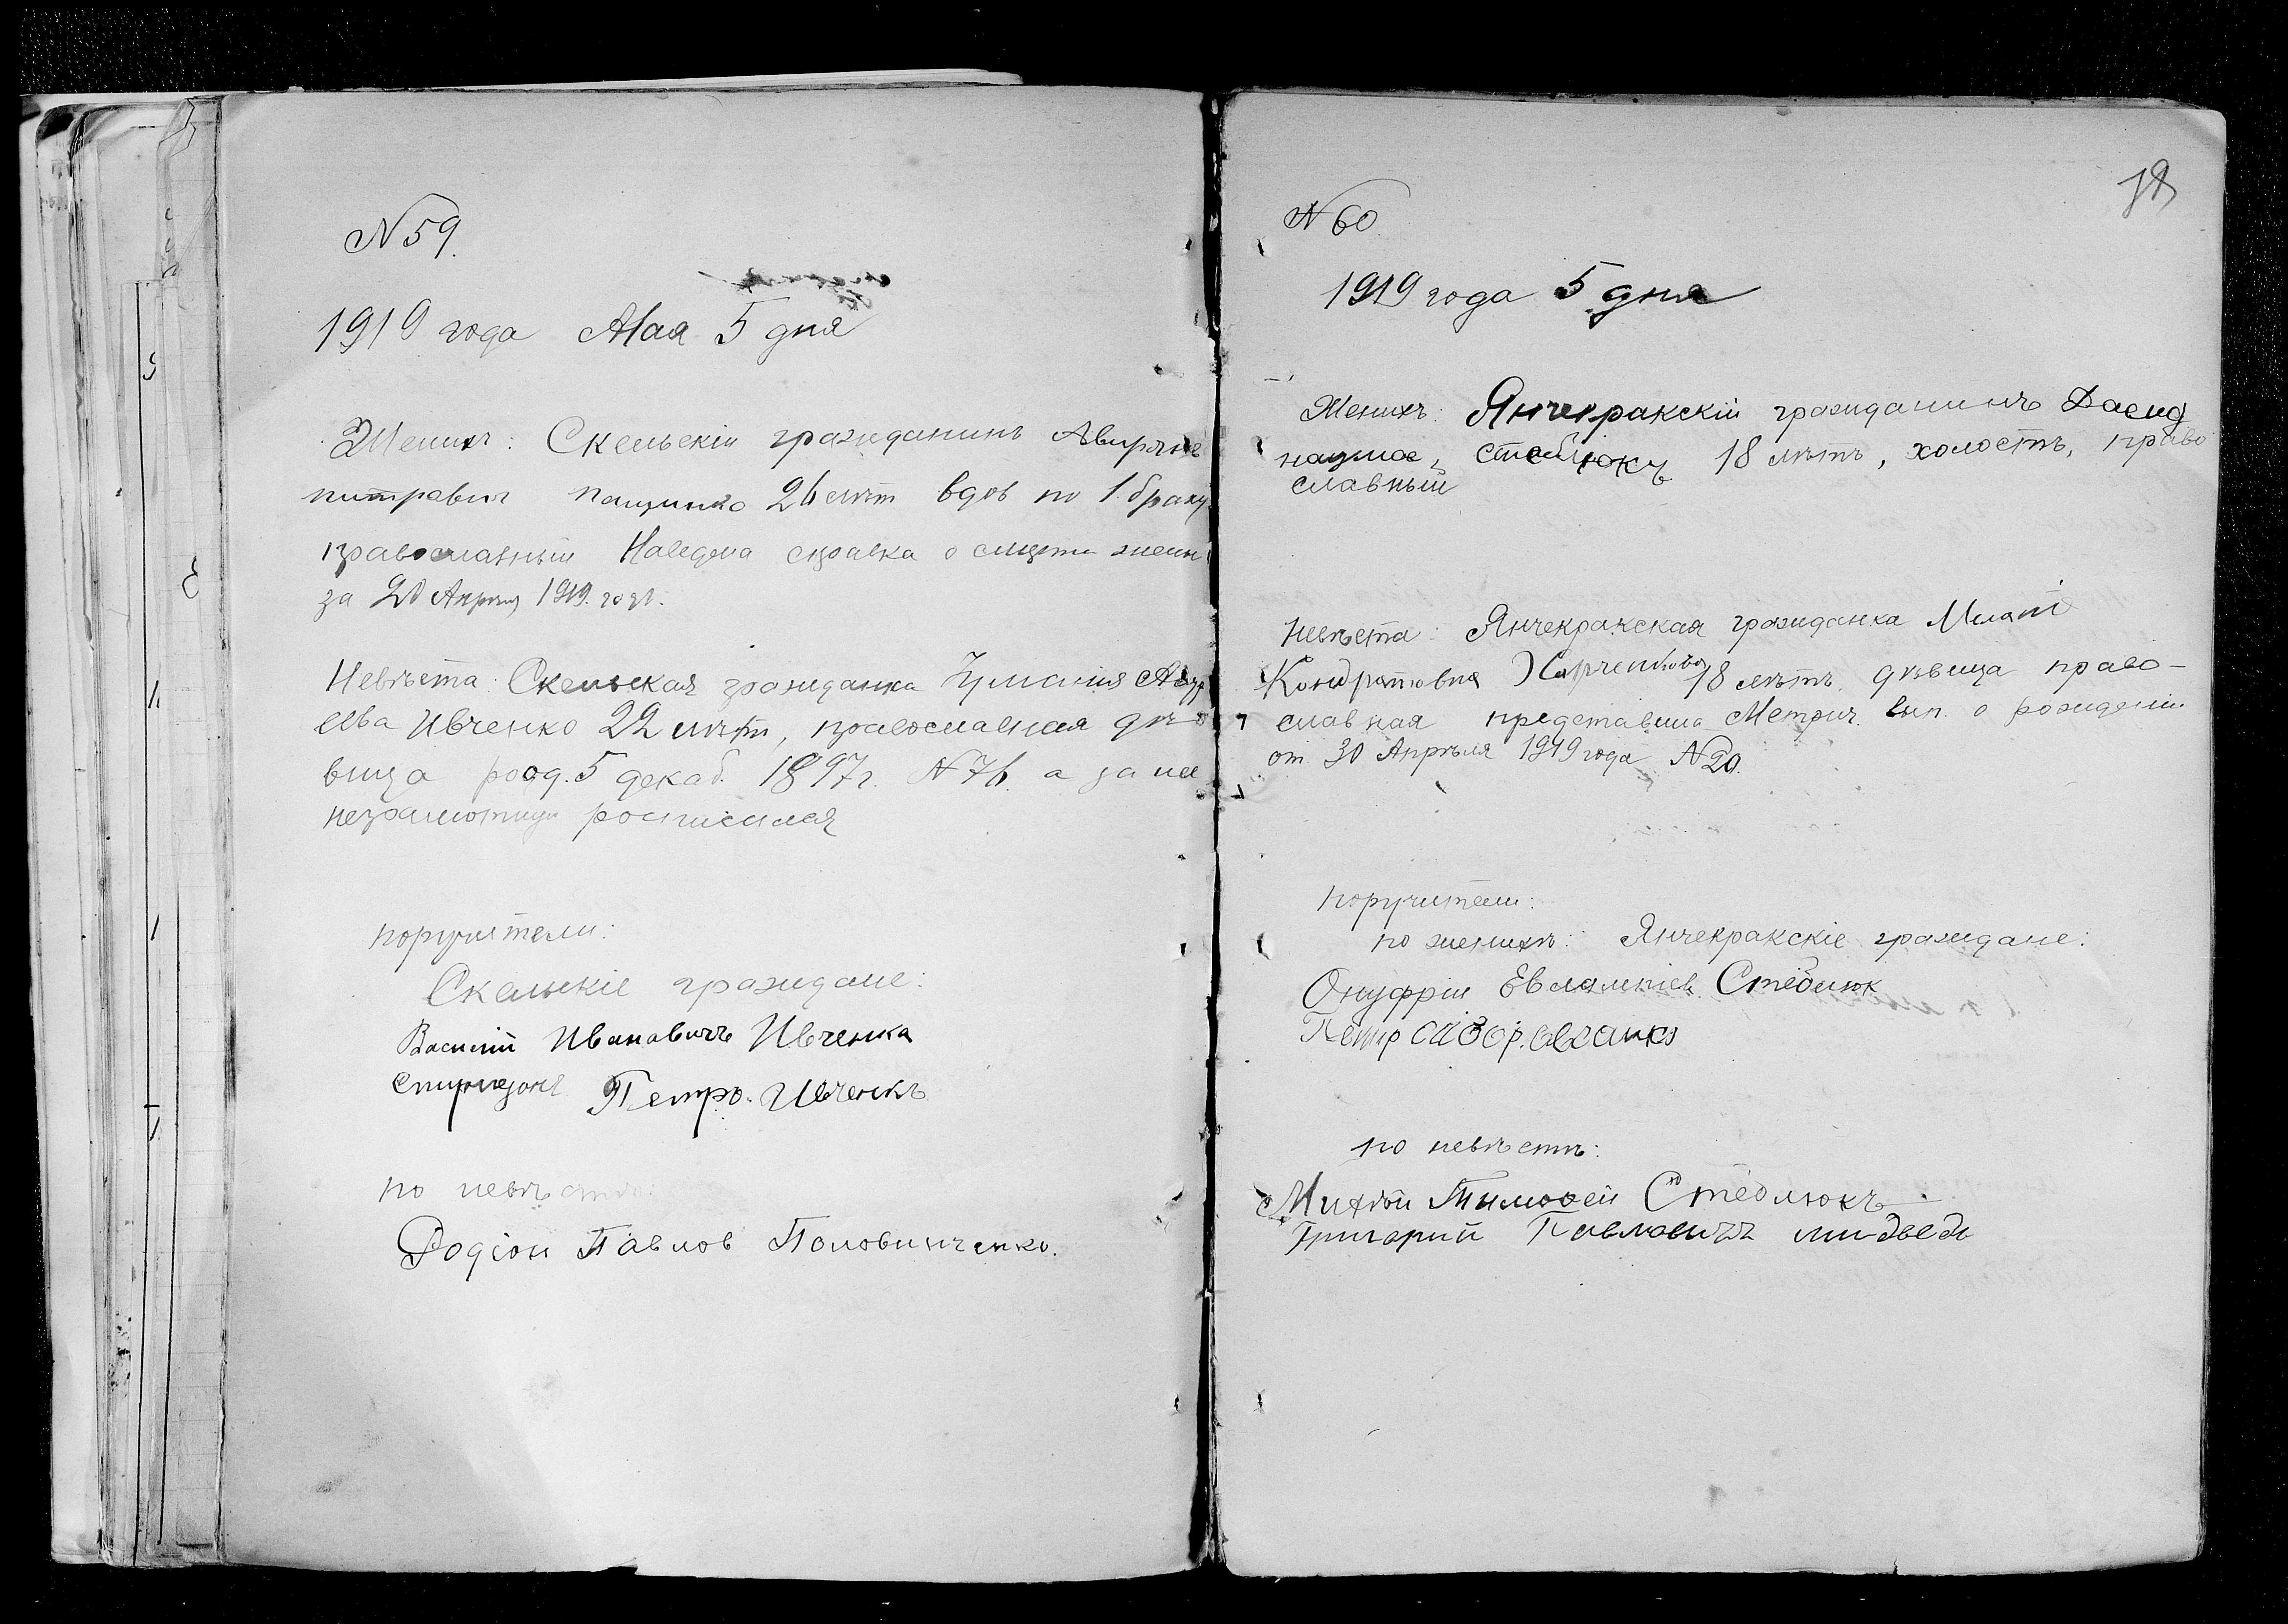 N 59.
1919 года Мая 5 дня
Женихъ: Скельскій гражданинъ
26 лѣт вдов по 1 браку
православный справка о
за 20 Апрѣля 1919. года.
Невѣста: Скельская гражданка
ева Ивченко 22 лѣт, православная дѣ
вица 5 декаб. 1897 г. N 76. а за нее
неграмотную росписался
поручители:
Скельскіе граждане:
Василій Ивановичъ Ивченка
Петро. Ивченкъ
по невѣстѣ:
Родіон Павлов Половинченко.
18
N 60.
1919 года 5 дня
Женихъ: Янчекракскій гражданинъ
Стеблюкъ 18 лѣтъ, холостъ, право
славный
Невѣста: Янчекракская гражданка
Кондратовна Харченкова 18 лѣтъ, дѣвица право-
славная представила Метрич. вып. о рожденіи
от 30 Апрѣля 1919 года N 20.
поручители:
по женихѣ: Янчекракскіе граждане:
Онуфрій Евлампіев Стеблюк
Петр
по невѣстѣ:
Тимофей Стеблюкъ
Григорий Павловичъ мидведь